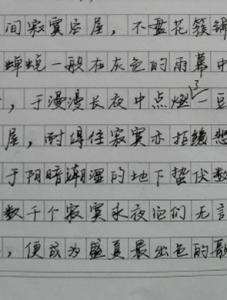 间寂寞空屋，不盘花簇锦
蝉蜕一般在灰色的雨幕中
，于漫漫长夜中点燃一豆
屋，耐得住寂寞亦拒绝
于阴暗潮湿的地下蛰伏数
数千个寂寞永夜它们无言
，便成为盛夏最出色的歌